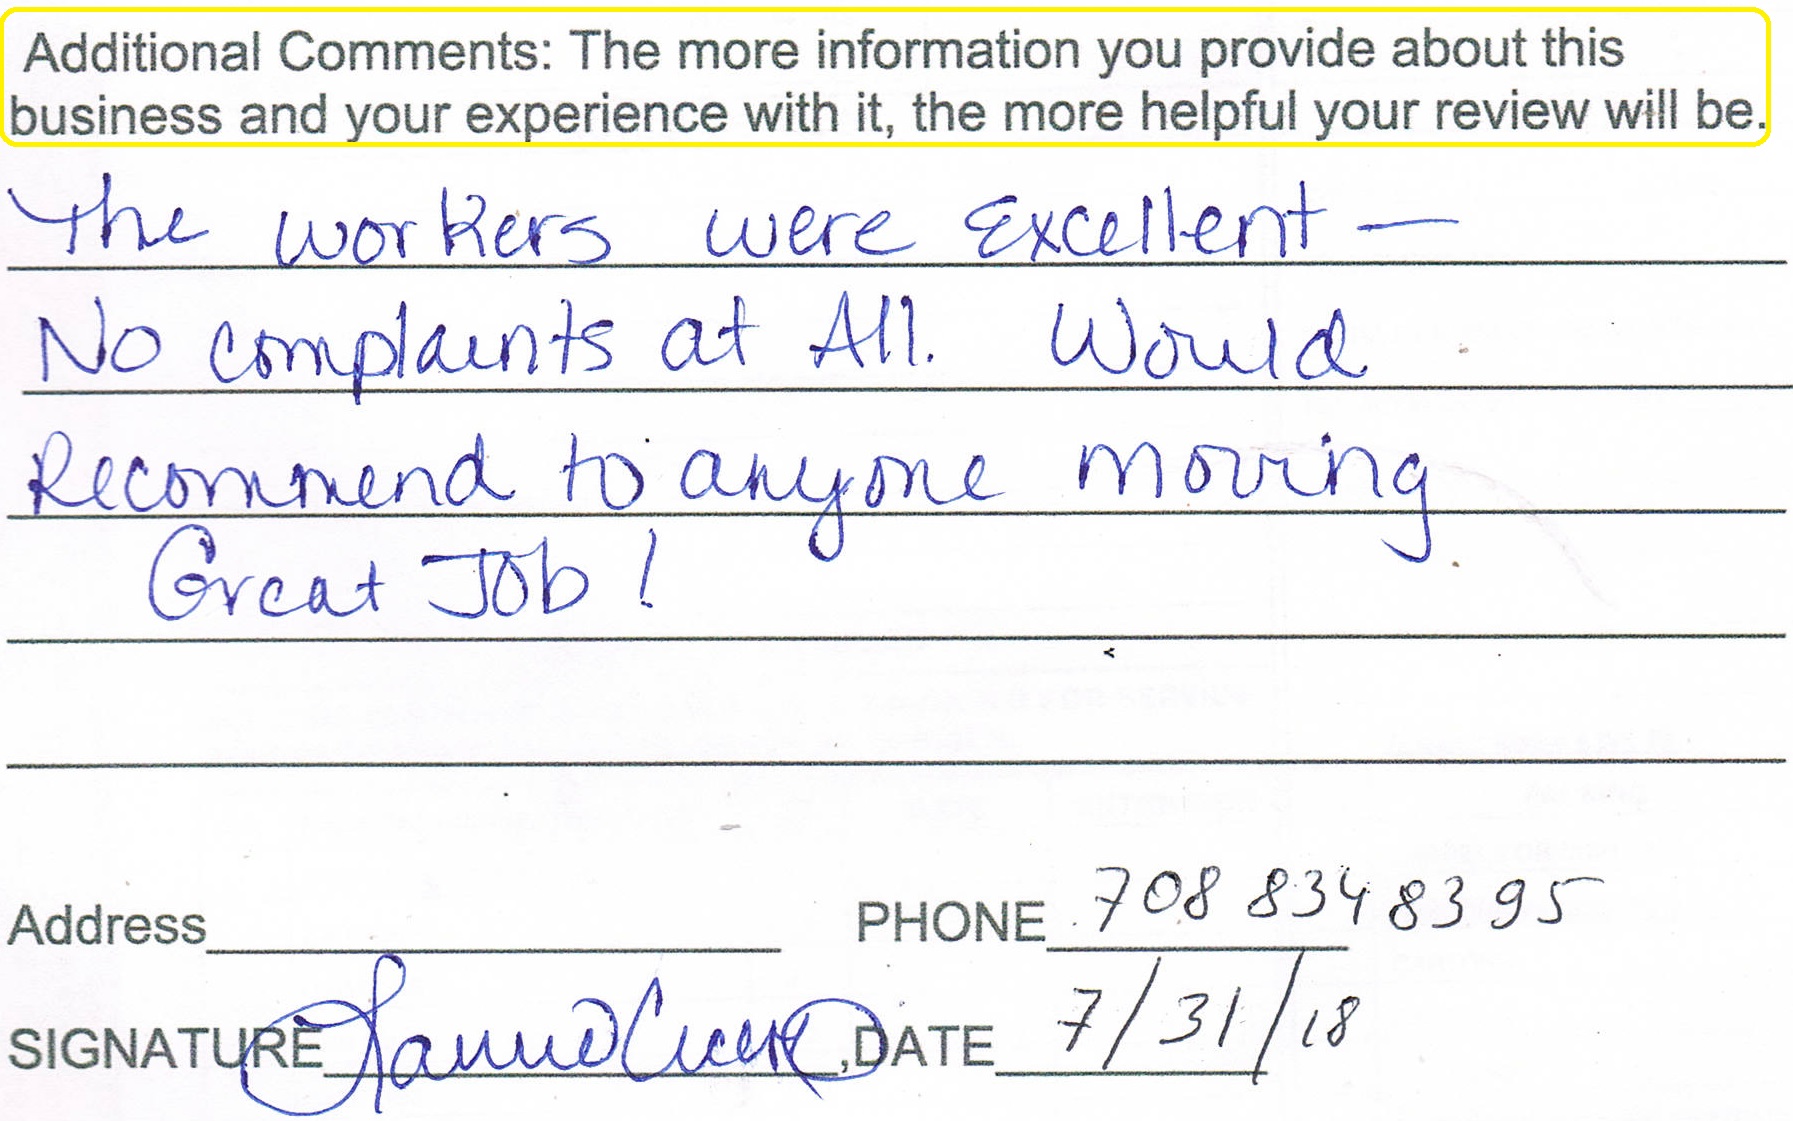 Additional Comments: The more information you provide about this
business and your experience with it, the more helpful your review will be.
The workers were Excellent —
No complaints at All. Would
Recommend to anyone moving
Great Job!
Address PHONE 708 834 8395
SIGNATURE ,DATE 7/31/18